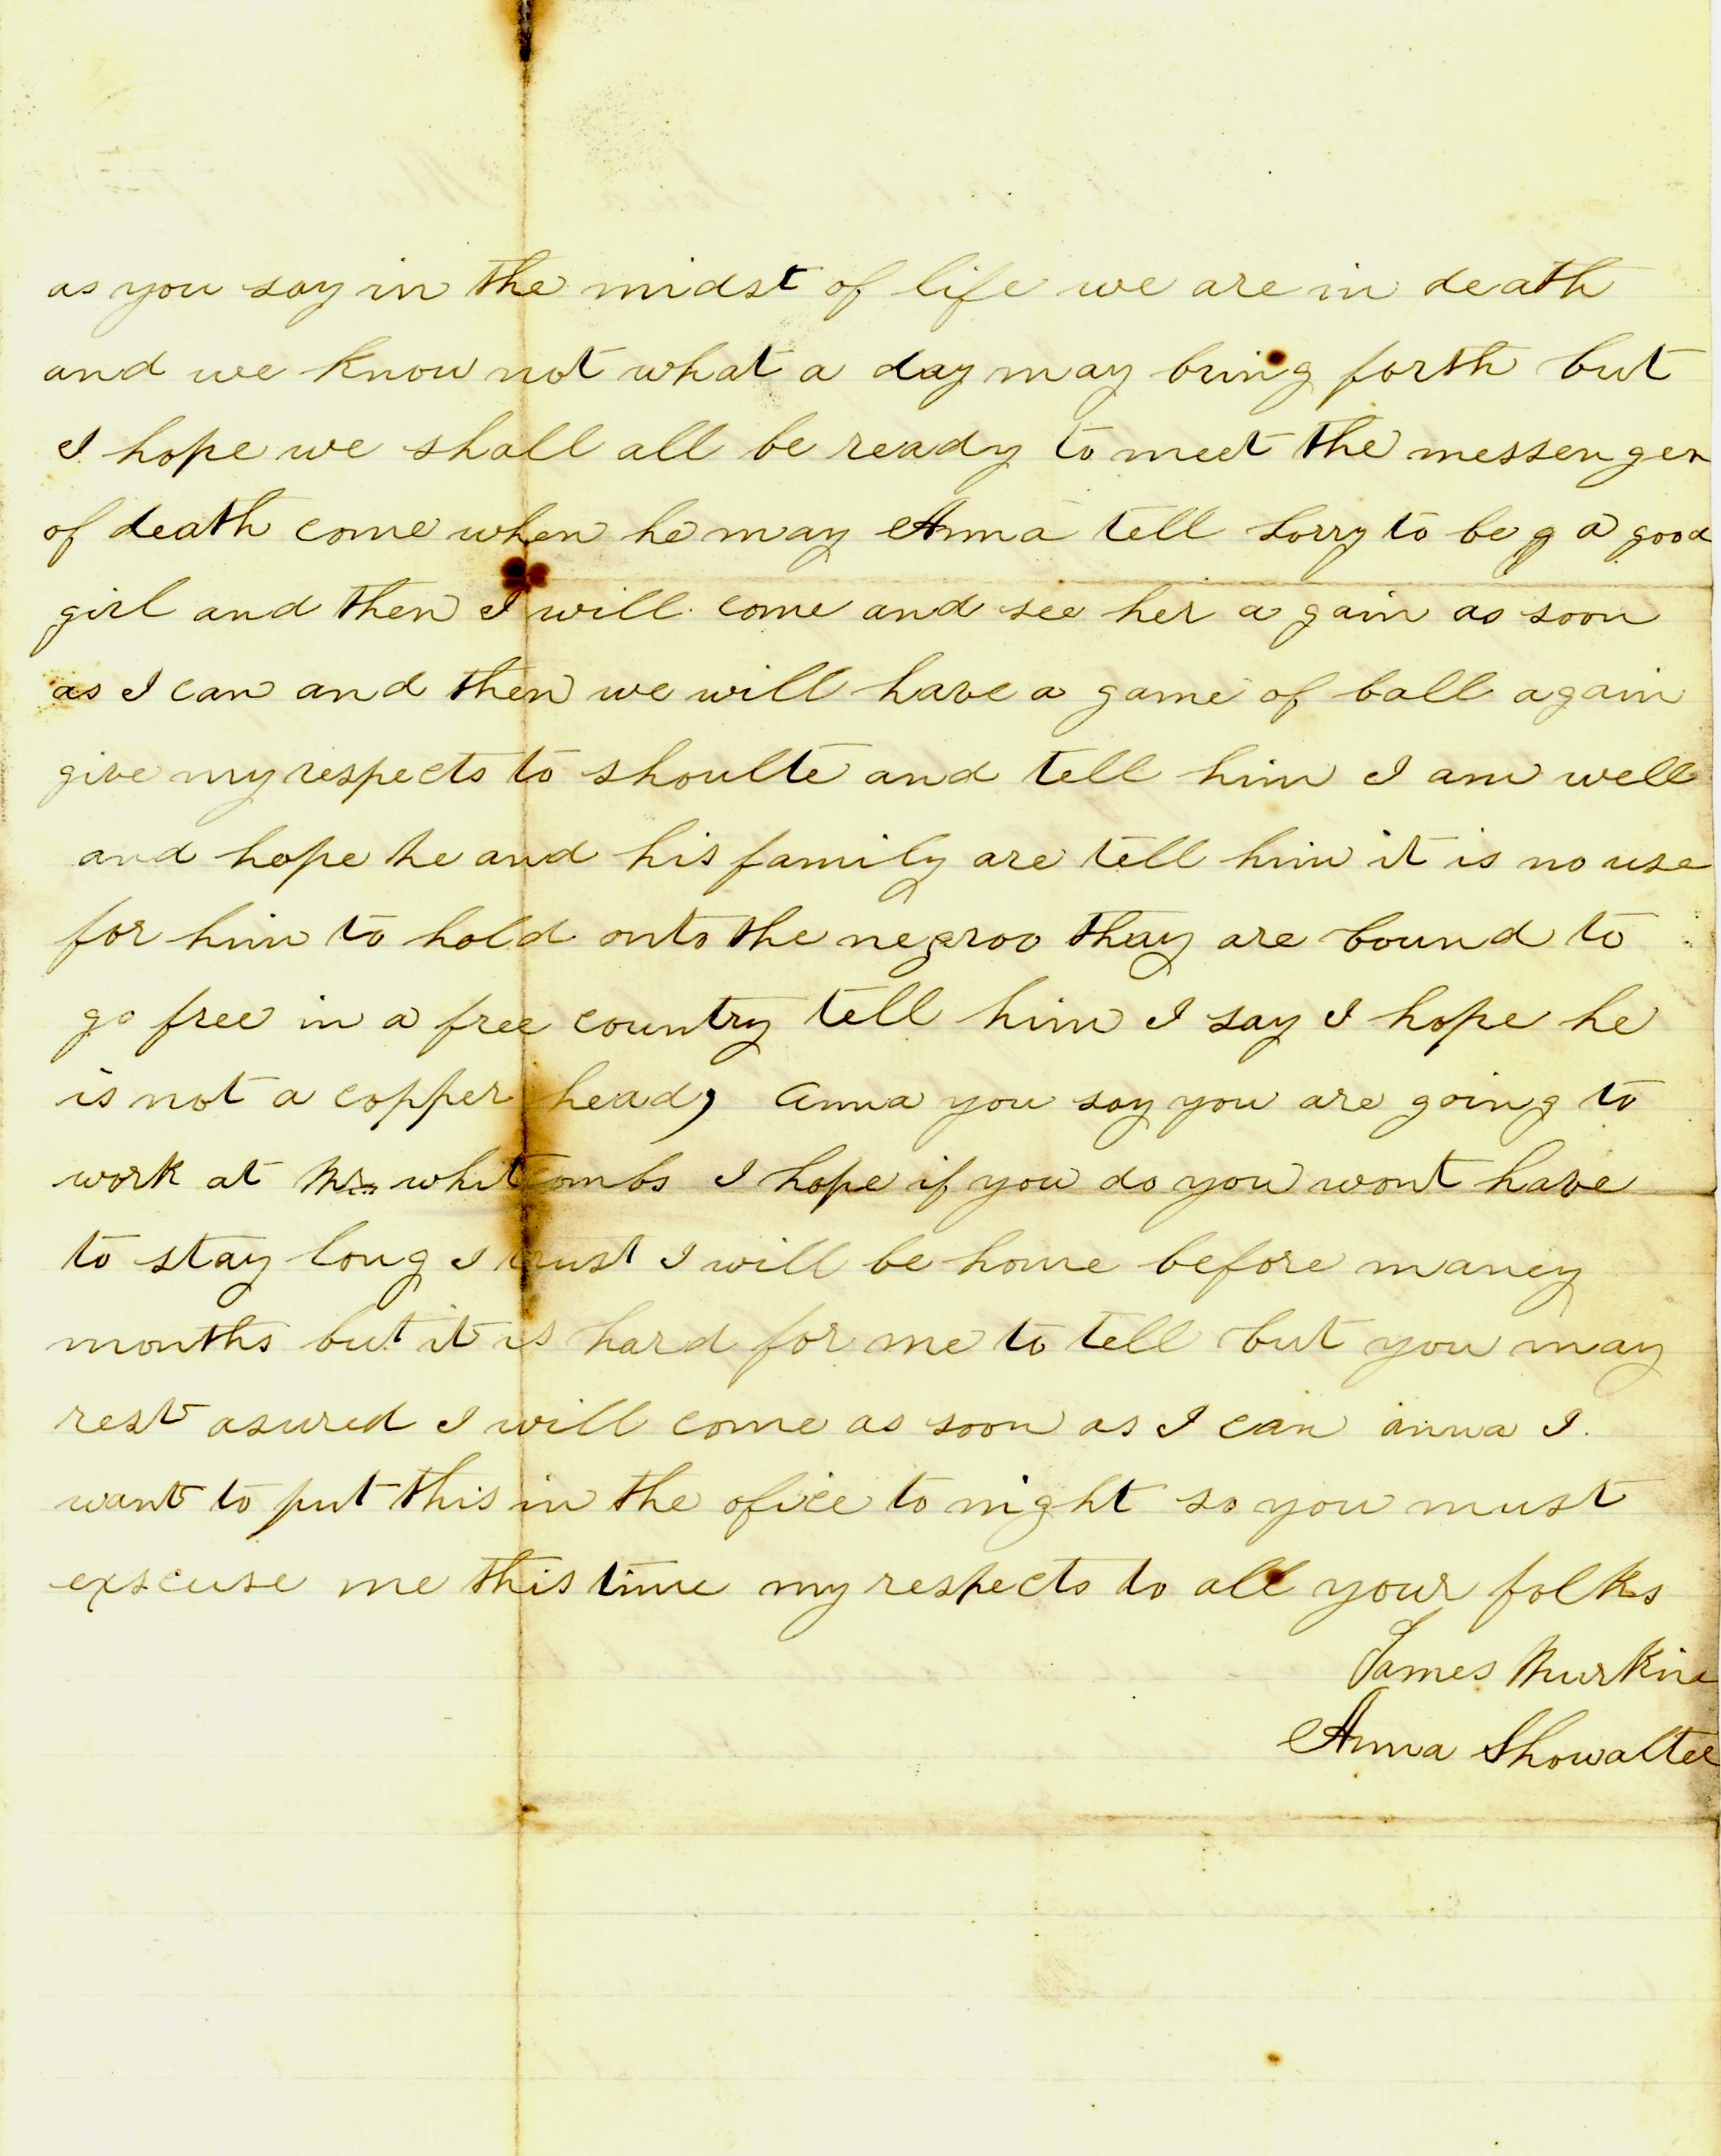 as you say in the midst of life we are in death
and we know not what a day may bring forth but
I hope we shall all be ready to meet the messenger
of death come when he may Anna tell Lorry to be g a good
girl and then I will come and see her a gain as soon
as I can and then we will have a game of ball again
give my respects to shoulte and tell him I am well
and hope he and his family are tell him it is no use
for him to hold onto the negroo thay are bound to
go free in a free country tell him I say I hope he
is not a copper head, Anna you say you are going to
work at Mr. whitcombs I hope if you do you wont have
to stay long I trust I will be home before maney
months but it is hard for me to tell but you may
rest asured I will come as soon as I can anna I.
want to put this in the ofice to night so you must
exscuse me this time my respects to all your folks
James Murkins
Anna Showalter